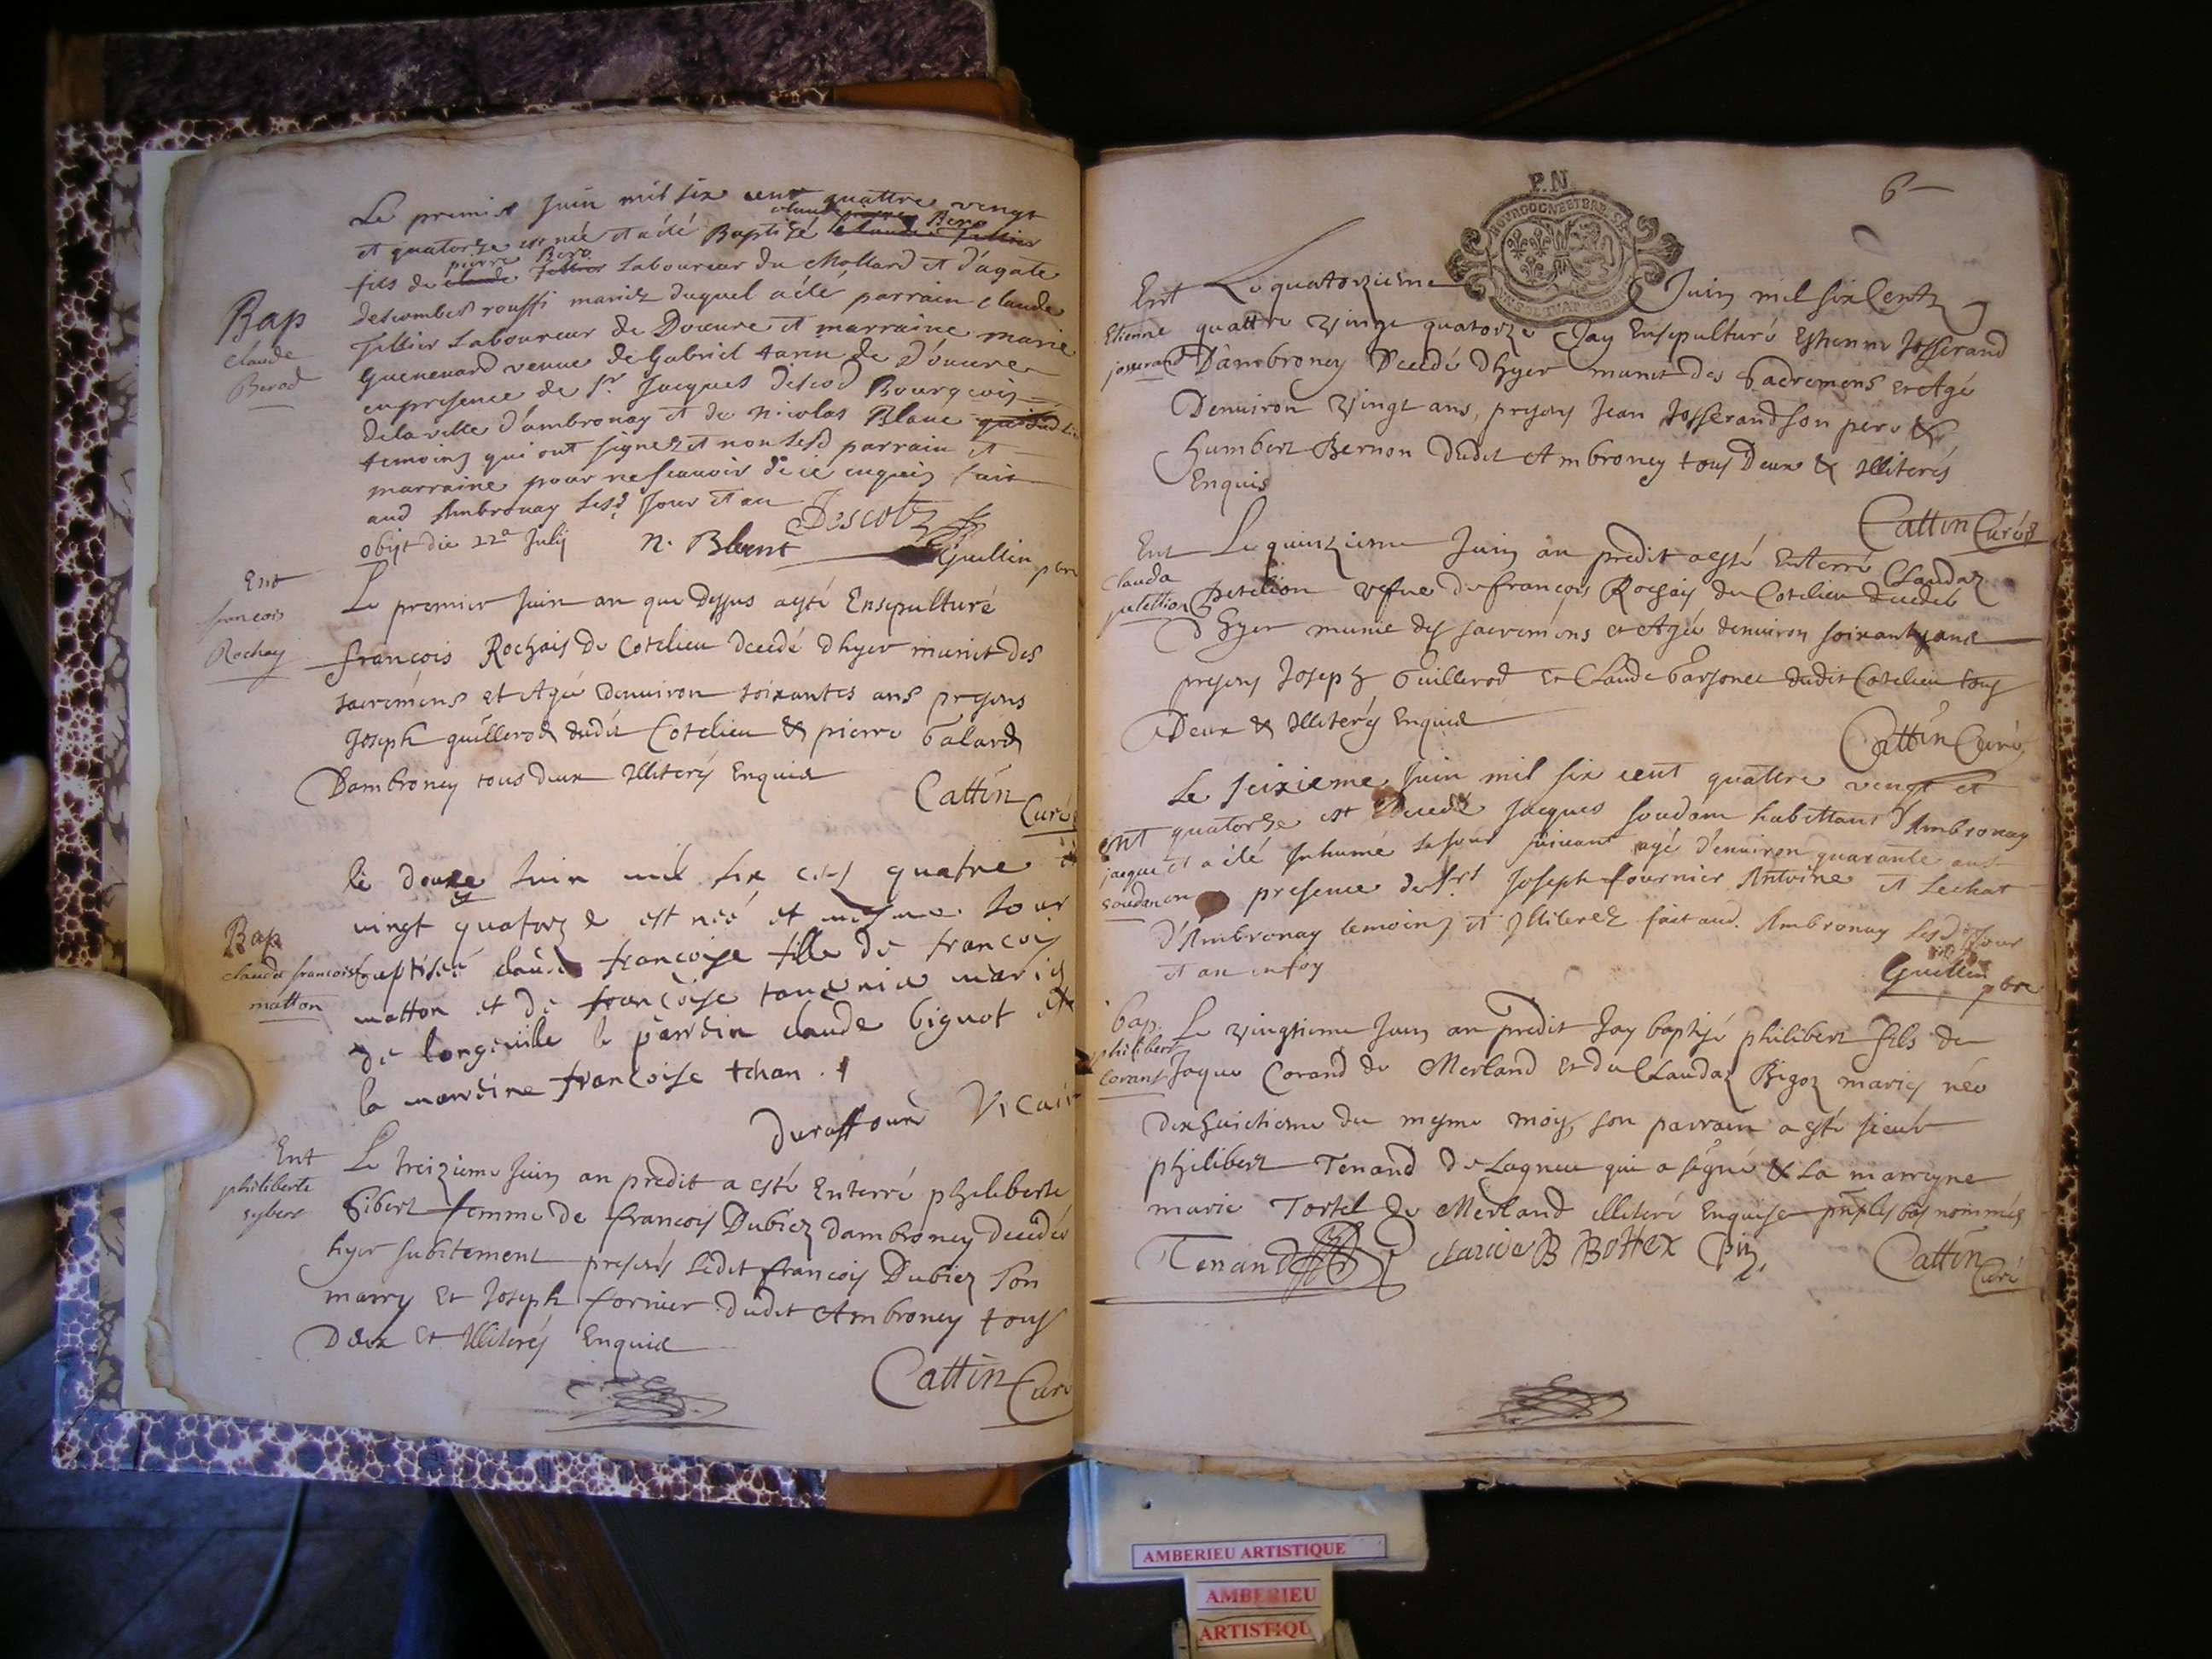 Le premier Juin mil six cent quattre vengt
claude pierre Bero
et quatorze est né et a été Baptizé claude fillier
pierre Bero
fils de claude fillier Laboureur du Mollard et d'agate
Bap
claude
Berod
descombes roussi mariez duquel a été parrain claude
fillier Laboureur de Douvre et marraine marie
Guenenard veuve de Gabriel tarin de d'ouvre
en presence de Sr Jacques descod Bourgeois
de la ville d'ambronay et de nicolas Blanc
temoins qui ont signez et non lesd parrain et
marraine pour ne scauoir de ce enquis fait
aud Ambronay lesd Jour et an
obijt die 22a Julij
N. Blanc
Descotz
Guillin pbre
Ent
francois
Rochay
Le premier Juin an que dessus a esté Ensepulturé
françois Rochais de Cotelieu decedé dhyer munit des
sacremens et Agé denuiron soixantes ans presens
Joseph guillerod dudit Cotelieu & pierre Galard
Dambroney tous deux Illiterés Enquis
Cattin
Curé
le douze Juin mil six cens quatre
vingt quatorze est née et mesme Jour
Bap
claude francoise
matton
baptisée claude francoise fille de francois
matton et de françoise tauernie mariés
de longeville le parrein claude bignot et
la marreine francoise tchan .
Duraffourd Vicair
Ent
philiberte
sybert
Le treizieme Juin an predit a esté Enterré philiberte
Gibert femme de francois Dubiez dambroney decedée
hyer subitement presens Ledit francois Dubiez son
marry Et Joseph fornier dudit Ambroney tous
Deux Et Illiterés Enquis
Cattin Curé
P.N.
6
Ent
Etienne
josserand
Le quatorzieme Juin mil six Centz
quattre Vingt quatorze Jay Ensepulturé Estienne Josserand
D'ambroney Decedé dhyer munit des Sacremens et Agé
Denuiron Vingt ans, presens Jean Josserand son pere &
humbert Bernon dudit Ambroney tous Deux & Illiterés
Enquis
Cattin Curé
Ent
Clauda
petellion
Le quinzieme Juin an predit a esté Enterré Claudaz
petelion vefue de françois Rochais de Cotelieu decedée
d hyer munie des sacremens et Agée denuiron soixante ans
presens Joseph Guillerod et Claude Garsonet dudit Cotelieu tous
Deux & Illiterés Enquis
Cattin Curé
Le seizieme Juin mil six cent quattre vengt et
ent
jacque
soudan
quatorze est decedé Jacques soudam habittant d'Ambronay
et a été Inhumé le jour suivant agé d'enuiron quarante ans
en presence de Srs Joseph fournier Antoine et Lechat
d'Ambronay temoins et Illiterez fait aud. Ambronay lesd Jour
et an en foy
Guillin pbre
bap.
philibert
Corant
Le vingtieme Juin an predit Jay baptisé philibert fils de
Jaque Corand de Merland et de Claudaz Bigoz mariés née
dixhuictieme du mesme mois, son parrain a esté sieur
philibert Tenand de Lagneu qui a signé & La marreyne
marie Tortel de Merland illiteré Enquise pnts les bas nommés
Tenand
Cattin
Curé
AMBERIEU ARTISTIQUE
AMBERIEU
ARTISTIQU